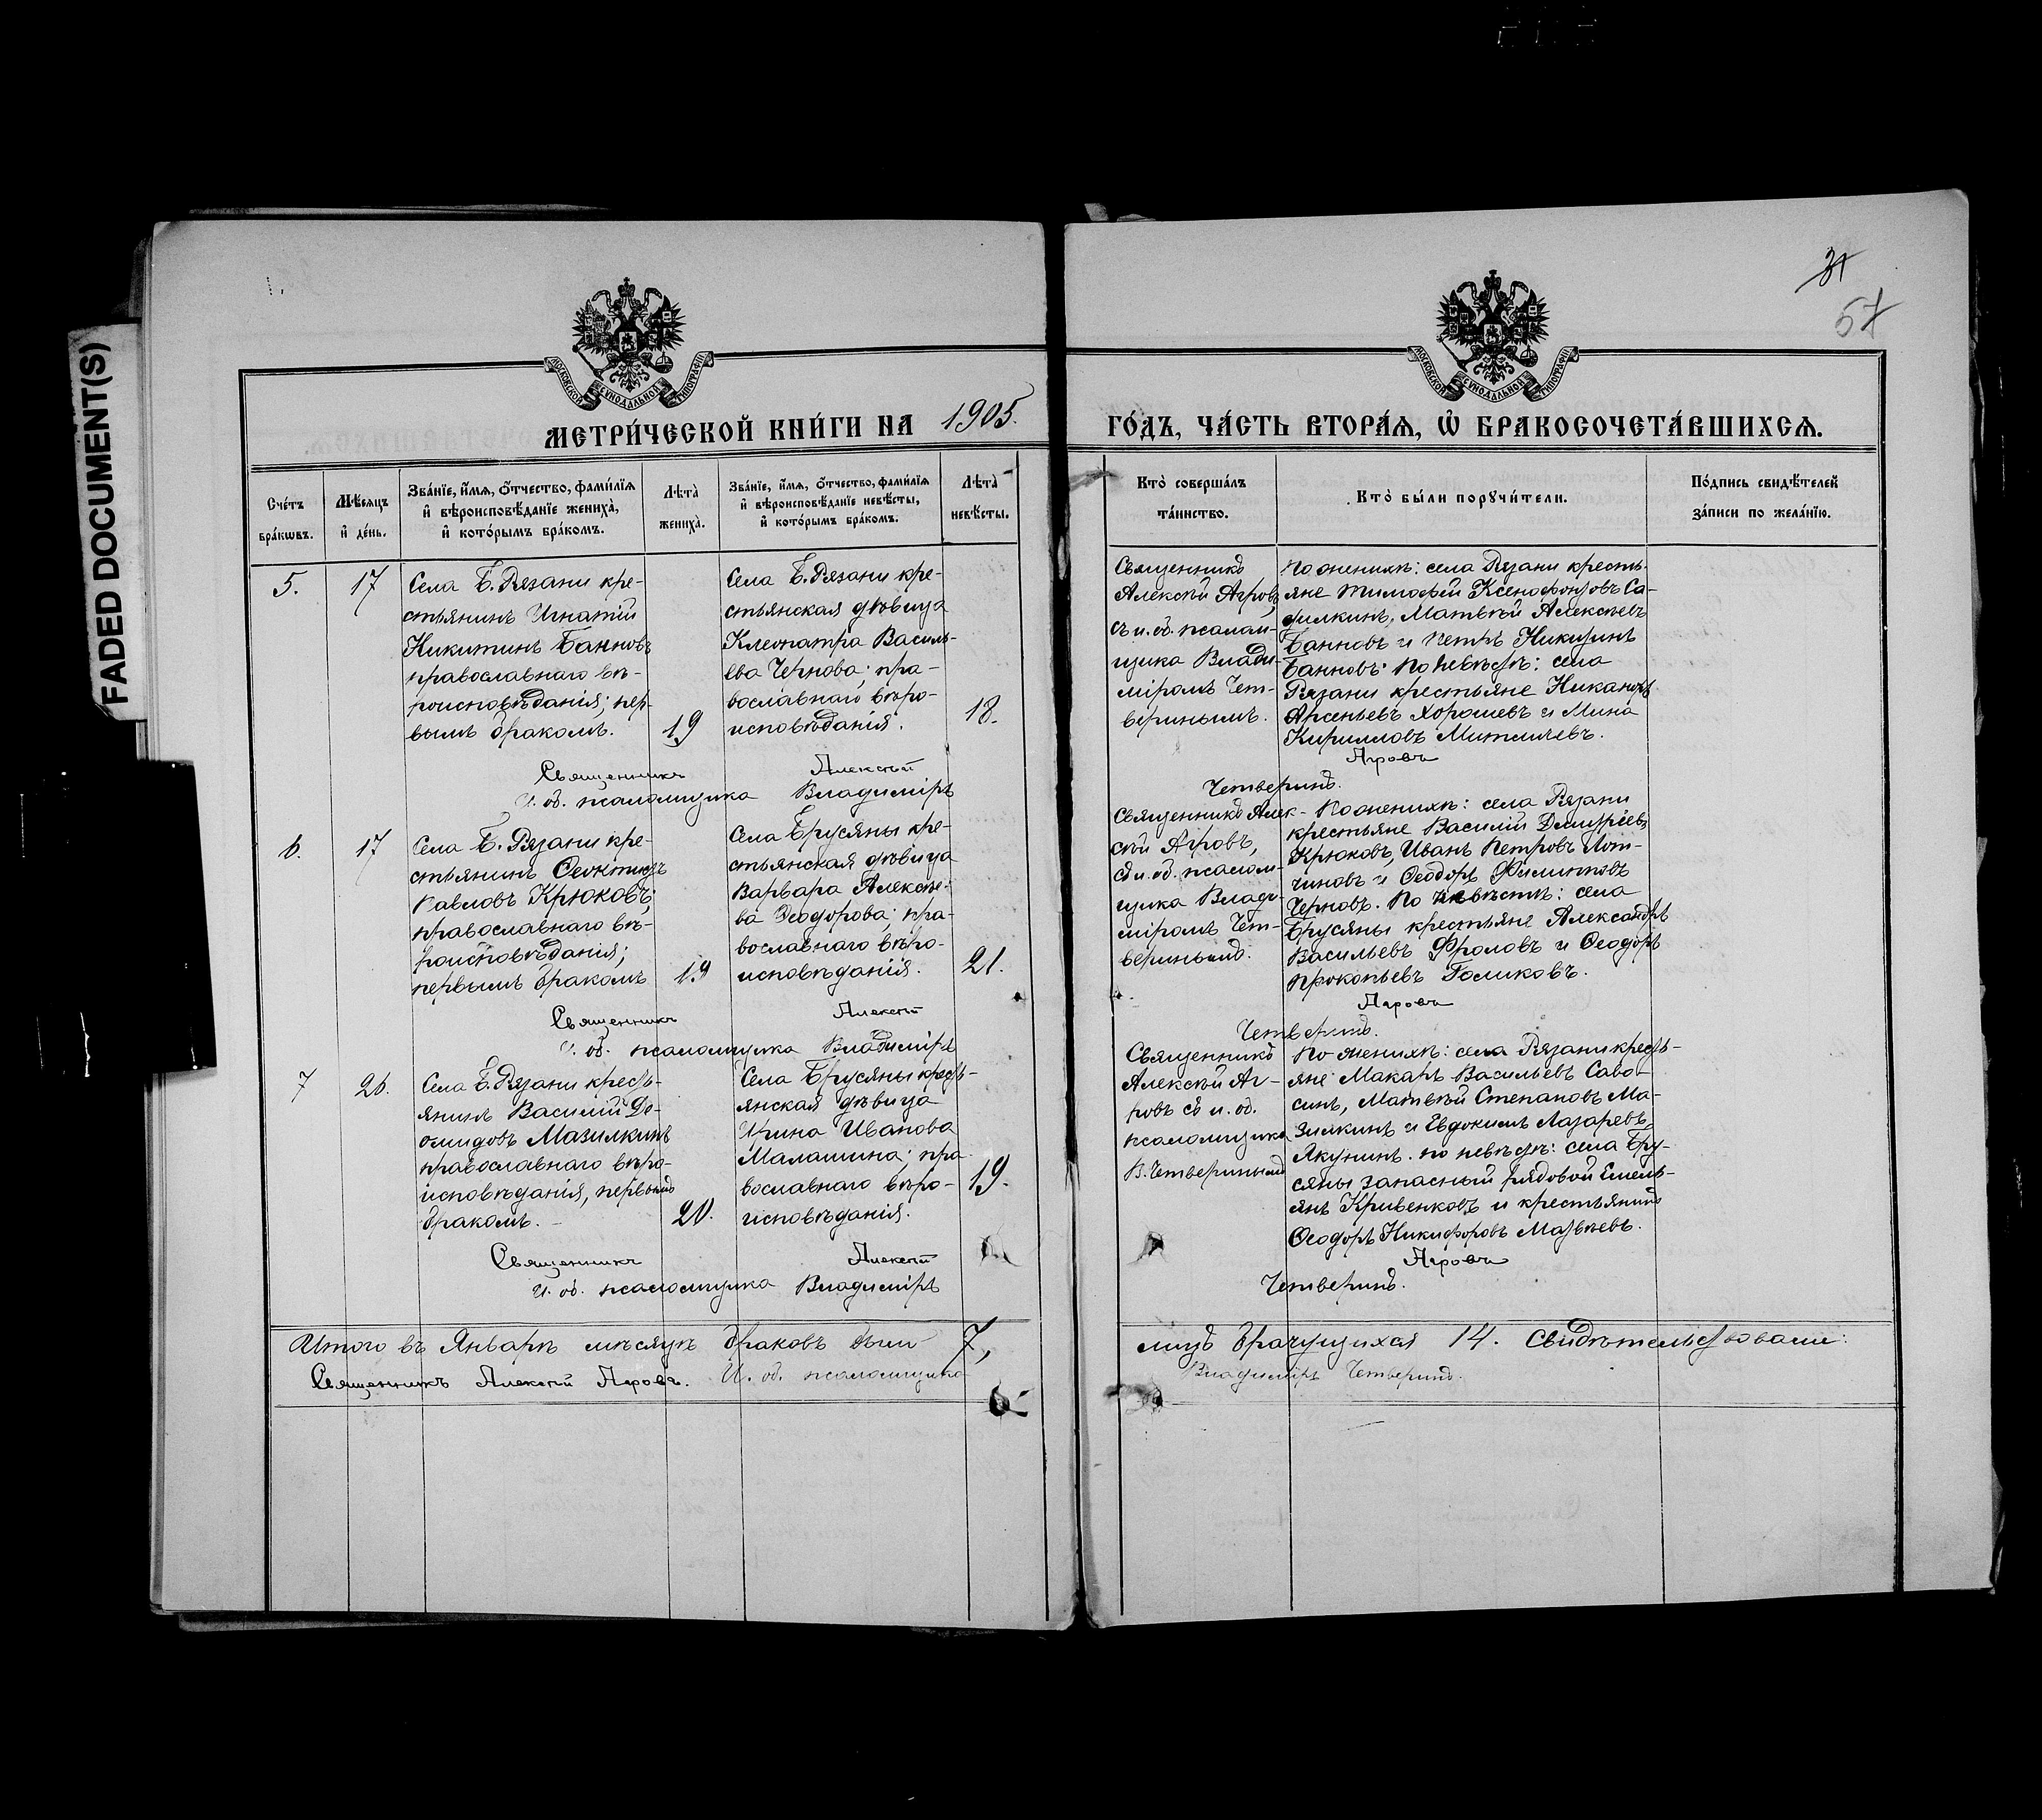 FADED DOCUMENT(S)
31
57
МОСКОВСКОЙ СѴНОДАЛЬНОЙ ТИПОГРАФІИ
МОСКОВСКОЙ СѴНОДАЛЬНОЙ ТИПОГРАФІИ
МЕТРИ́ЧЕСКОЙ КНИ́ГИ НА 1905.
ГО́ДЪ, ЧА́СТЬ ВТОРА́Ѧ, Ѡ҆ БРАКОСОЧЕТА́ВШИХСѦ.
Сче́тъ бра́кѡвъ.
Мѣ́сяцъ и҆ де́нь.
Зва́нїе, и҆́мѧ, о҆́тчество, фами́лїѧ и҆ вѣроисповѣ́данїе жениха̀, и҆ кото́рымъ бра́комъ.
Лѣта̀ жениха̀.
Зва́нїе, и҆́мѧ, о҆́тчество, фами́лїѧ и҆ вѣроисповѣ́данїе невѣ́сты, и҆ кото́рымъ бра́комъ.
Лѣта̀ невѣ́сты.
Кто̀ соверша́лъ та́инство.
Кто̀ бы́ли порꙋчи́тели.
По́дпись свидѣ́телей за́писи по жела́нїю.
5.
17
Села Б. Рязани кре-
стьянинъ Игнатій
Никитинъ Банновъ
православнаго вѣ-
роисповѣданія; пер-
вымъ бракомъ.
19
Села Б. Рязани кре-
стьянская дѣвица
Клеопатра Василь-
ева Чернова; пра-
вославнаго вѣро-
исповѣданія.
18.
Священникъ
Алексѣй Агровъ,
съ и. об. псалом-
щика Влади-
міромъ Чет-
веринымъ.
По женихѣ: села Рязани кресть-
яне Тимофей Ксенофонтовъ Са-
филкинъ, Матвѣй Алексѣевъ
Банновъ и Петръ Никитинъ
Банновъ. По невѣстѣ: села
Рязани крестьяне Никаноръ
Арсеньевъ Хорошевъ и Мина
Кирилловъ
Священникъ Алексѣй Агровъ
И. об. псаломщика Владиміръ Четверинъ.
6.
17
Села Б. Рязани кре-
стьянинъ Ѳеоктистъ
Павловъ Крюковъ;
православнаго вѣ-
роисповѣданія;
первымъ бракомъ
19
Села Брусяны кре-
стьянская дѣвица
Варвара Алексѣе-
ва Ѳеодорова; пра-
вославнаго вѣро-
исповѣданія.
21.
Священникъ Алек-
сѣй Агровъ,
съ и. об. псалом-
щика Влади-
міромъ Чет-
веринымъ.
По женихѣ: села Рязани
крестьяне Василій Димитріевъ
Крюковъ, Иванъ Петровъ Лот-
чиновъ и Ѳеодоръ Филипповъ
Черновъ. По невѣстѣ: села
Брусяны крестьяне Александръ
Васильевъ Фроловъ и Ѳеодоръ
Прокопьевъ Голиковъ.
Священникъ Алексѣй Агровъ
И. об. псаломщика Владиміръ Четверинъ.
7
26.
Села Б. Рязани кресть-
янинъ Василій Де-
омидовъ Мазилкинъ
православнаго вѣро-
исповѣданія, первымъ
бракомъ.
20.
Села Брусяны кресть-
янская дѣвица
Ирина Иванова
Малашина; пра-
вославнаго вѣро-
исповѣданія.
19.
Священникъ
Алексѣй Аг-
ровъ съ и. об.
псаломщика
В. Четверинымъ
По женихѣ: села Рязани кресть-
яне Макаръ Васильевъ Саво-
синъ, Матвѣй Степановъ Ма-
зилкинъ и Евдокимъ Лазаревъ
Якунинъ. по невѣстѣ: села Бру-
сяны запасный рядовой Емель-
янъ Кривенковъ и крестьянинъ
Ѳеодоръ Никифоровъ Матвѣевъ.
Священникъ Алексѣй Агровъ
И. об. псаломщика Владиміръ Четверинъ.
Итого въ Январѣ мѣсяцѣ браковъ было 7, лицъ брачущихся 14. Свидѣтельствовали:
Священникъ Алексѣй Агровъ. И. об. псаломщика Владиміръ Четверинъ.